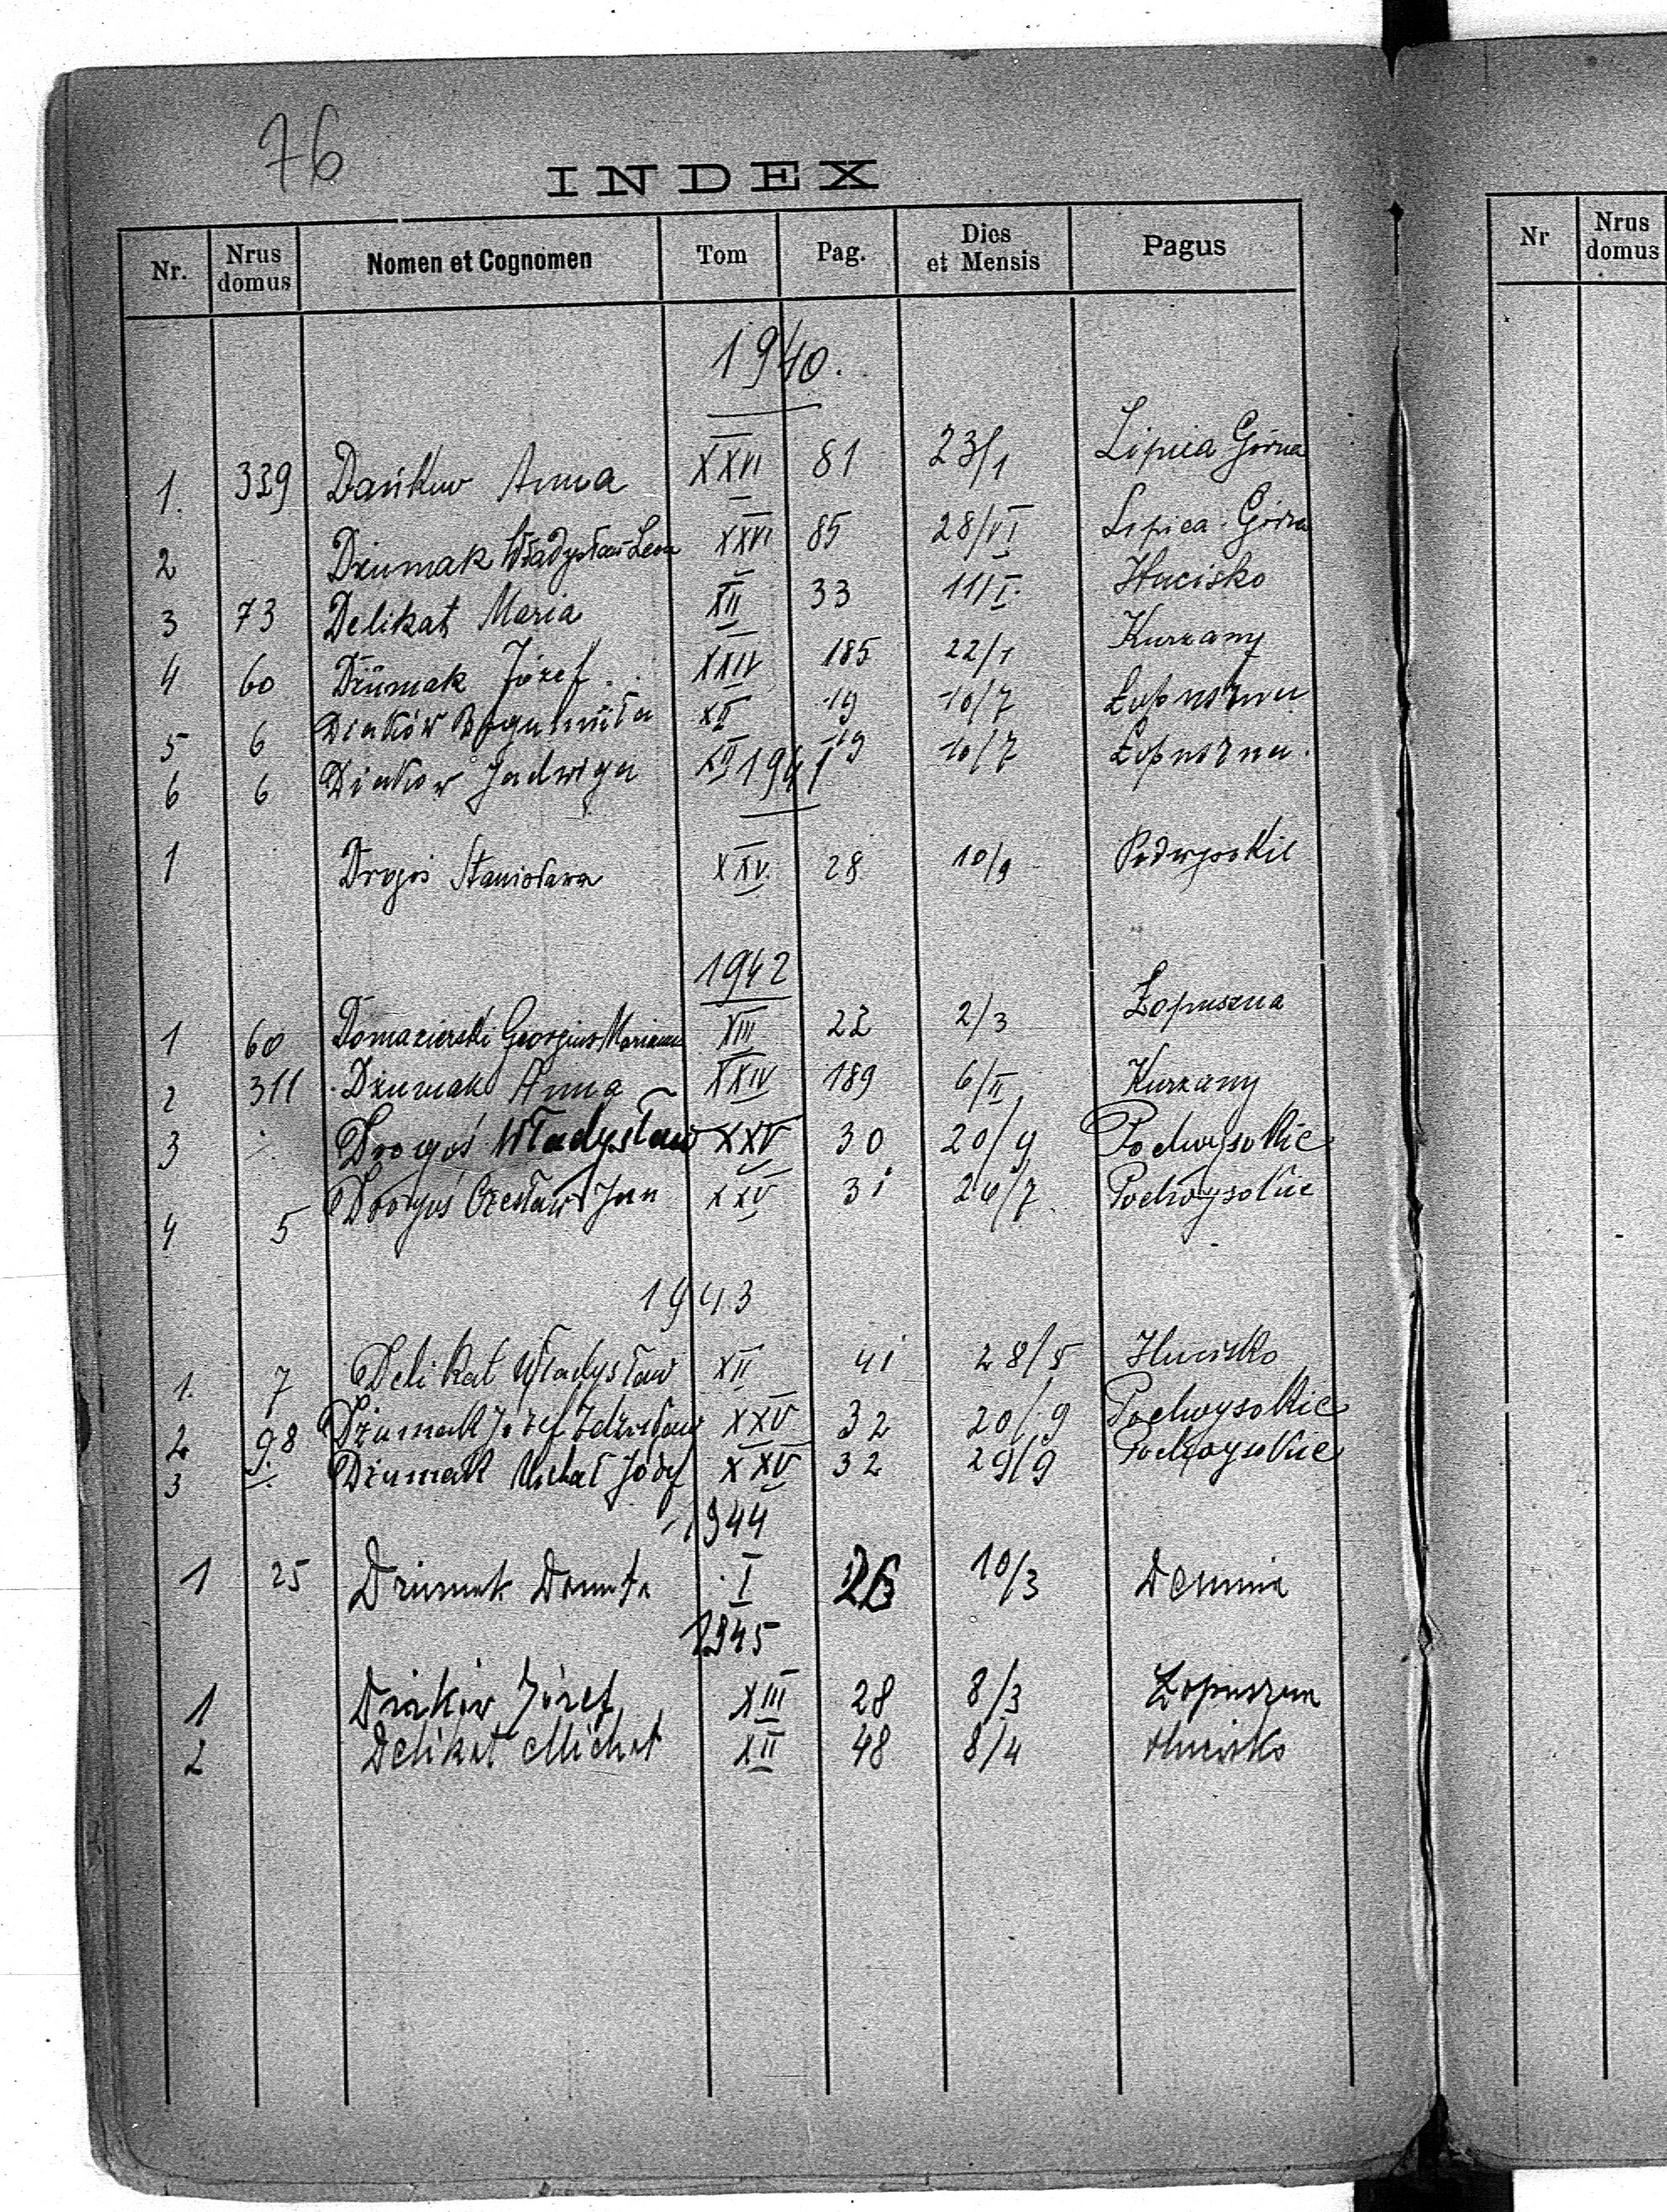 76
INDEX
Nr. Nrus domus Nomen et Cognomen Tom Pag. Dies et Mensis Pagus
1940.
1. 339 Dańkuw Anna XXVI 81 23/1 Lipica Górna
2 Dżumak Władysław Leon XXVI 85 28/VI Lipica Górna
3 73 Delikat Maria XII 33 11/I. Hucisko
4 60 Dżumak Józef XXIV 185 22/1 Kurzany
5 6 Diaków Bogumiła XII 19 10/7 Łopuszna
6 6 Diaków Jadwiga XII 19 10/7 Łopuszna.
1941
1 Drogoś Stanisława XXV. 28 10/9 Podwysokie
1942
1 60 Domazierski Georgius Marianus XIII 22 2/3 Łopuszna
2 311 Dżumak Anna XXIV 189 6/II Kurzany
3 Drogoś Władysław XXV 30 20/9 Podwysokie
4 5 Drogoś Czesław Jan XXV 31 26/7 Podwysokie
1943
1. 7 Delikat Władysław XII 41 28/5 Hucisko
2 98 Dżumak Józef Zdzisław XXV 32 20/9 Podwysokie
3 Dżumak Michał Józef XXV 32 29/9 Podwysokie
1944
1 25 Dżumak Danuta I 26 10/3 Demnia
1945
1 Diaków Józef XIII 28 8/3 Łopuszna
2 Delikat Michał XII 48 8/4 Hucisko
Nr Nrus domus